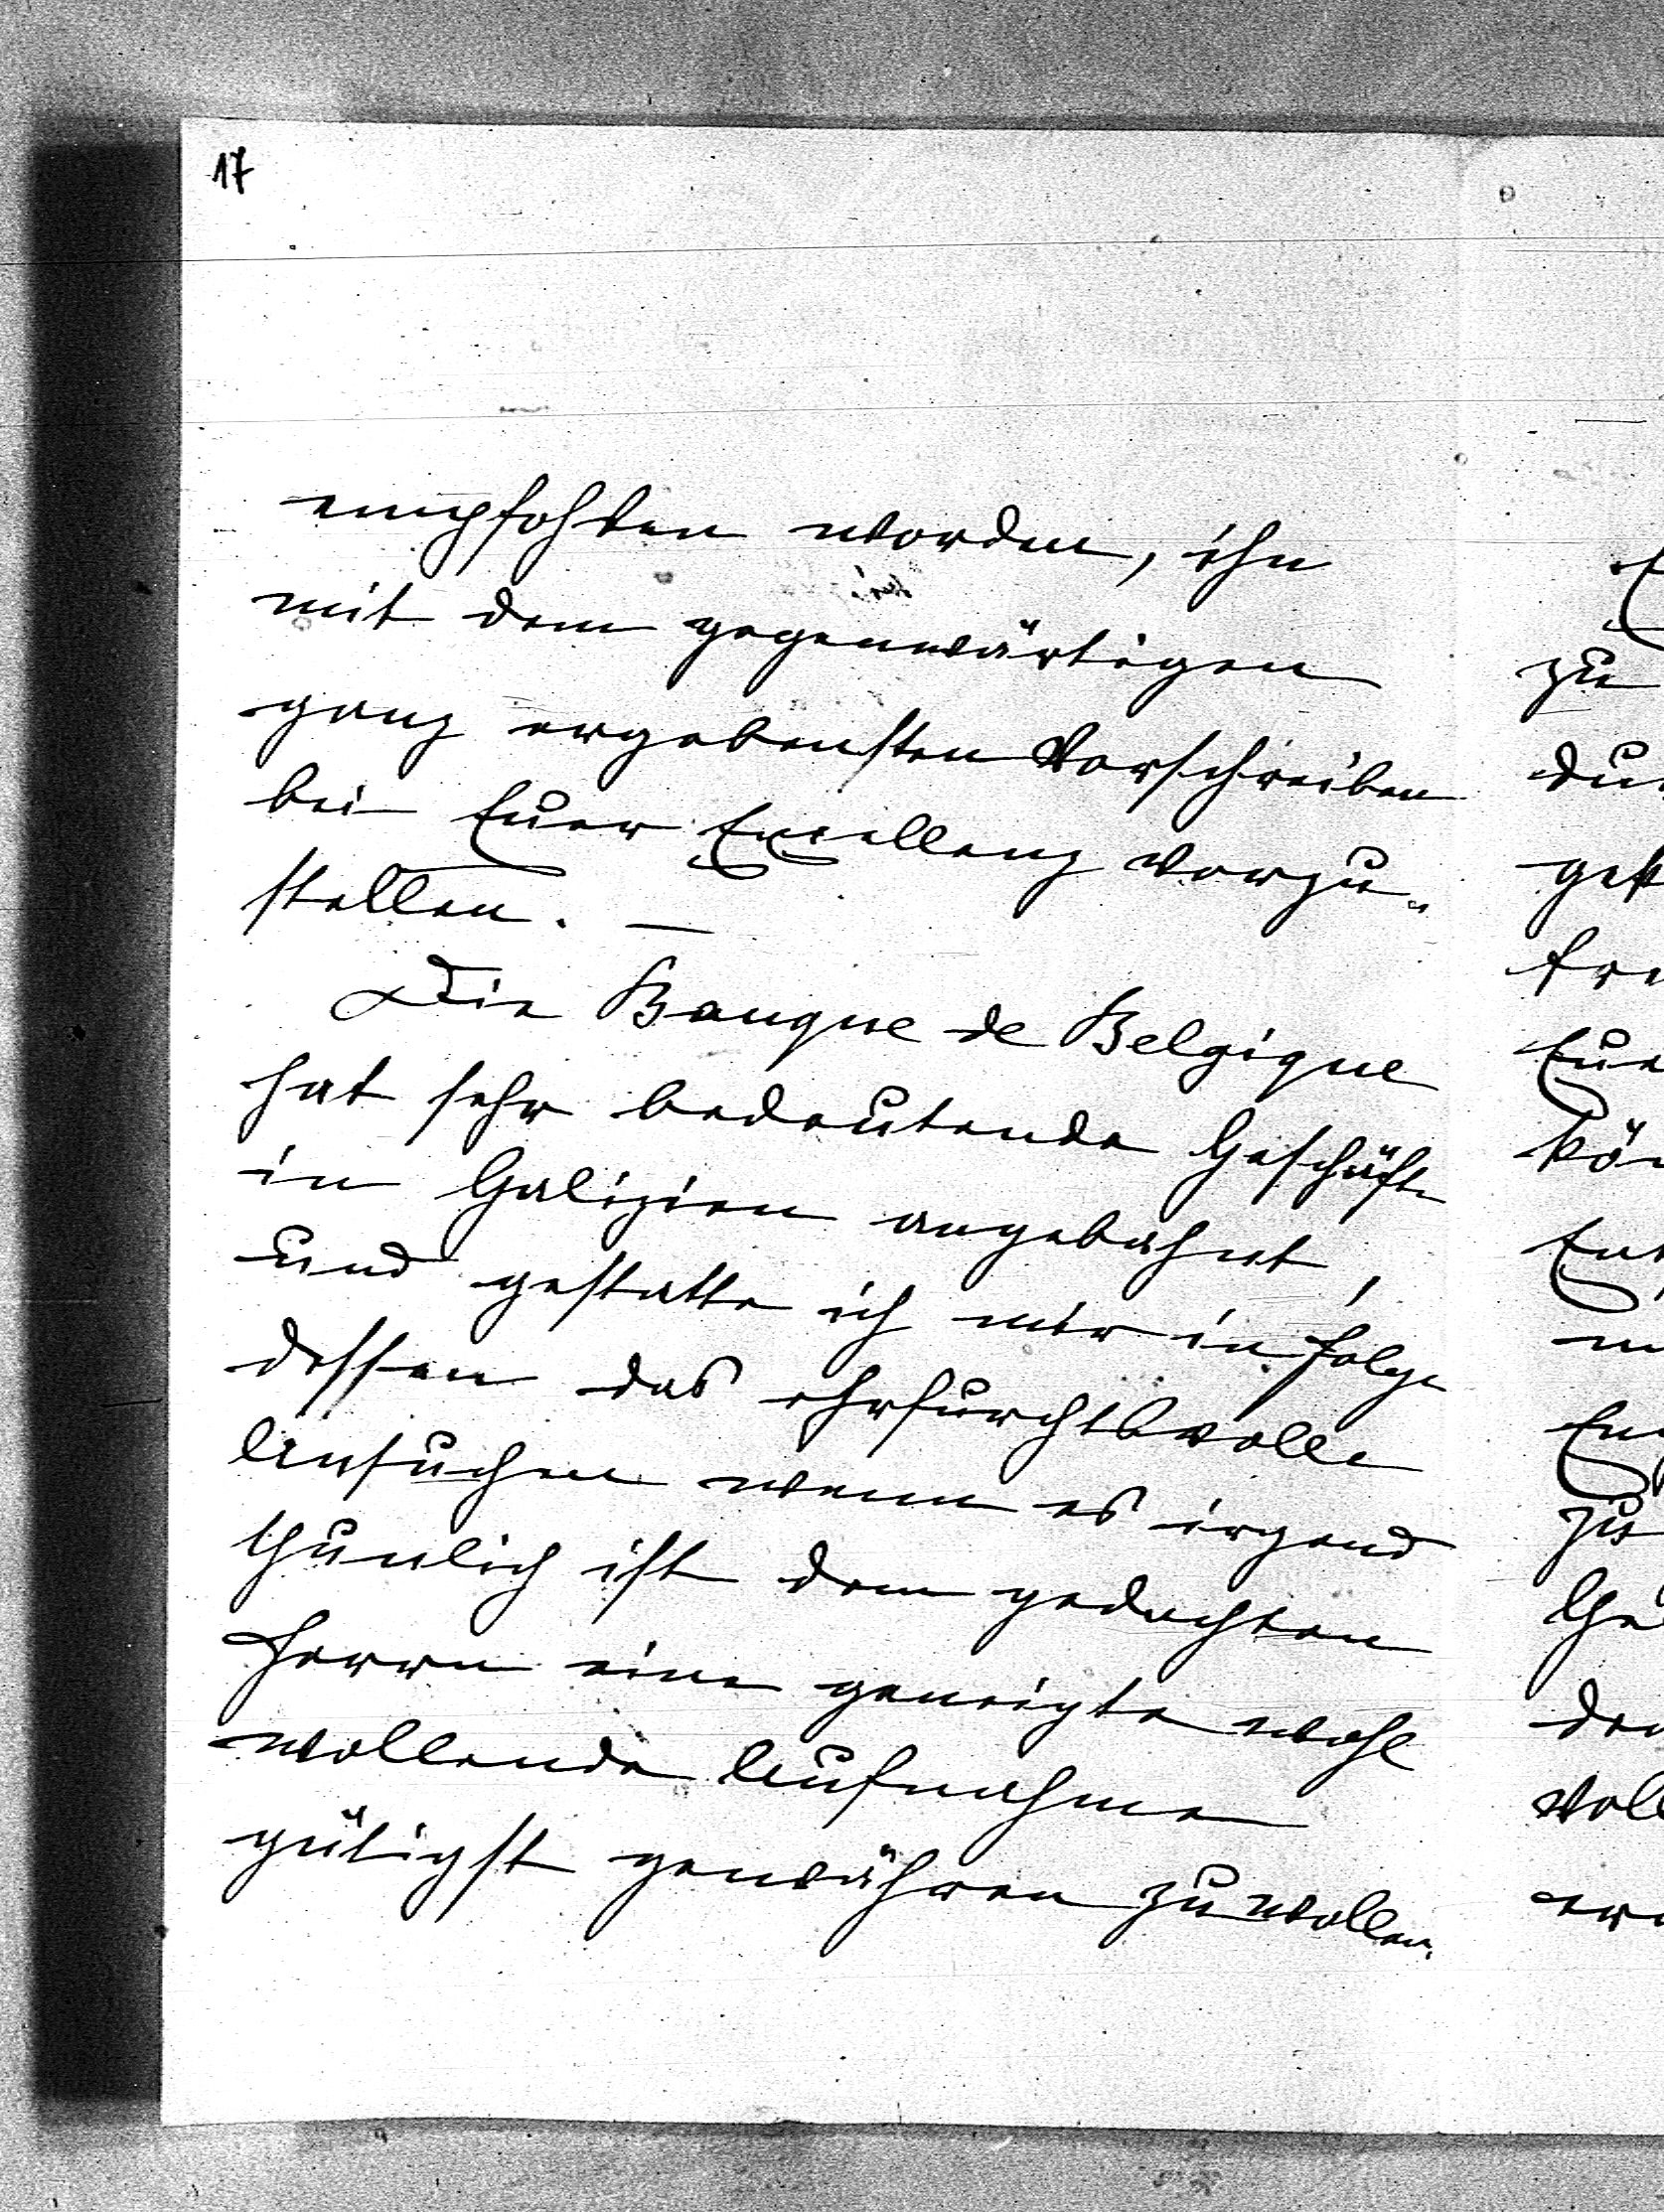 17
empfohlen worden, ihn
mit dem gegenwärtigen
ganz ergebensten Vorschreiben
bei Euer Excellenz vorzu„
stellen. —
Die Banque de Belgique
hat sehr bedeutende Geschäfte
in Galizien angebahnt,
und gestatte ich mir in folge
dessen das ehrfurchtsvolle
Ansuchen wenn es irgend
thunlich ist dem gedachten
Herrn eine geneigte wohl
wollende Aufnahme
gütigst gewähren zu wollen.
zu